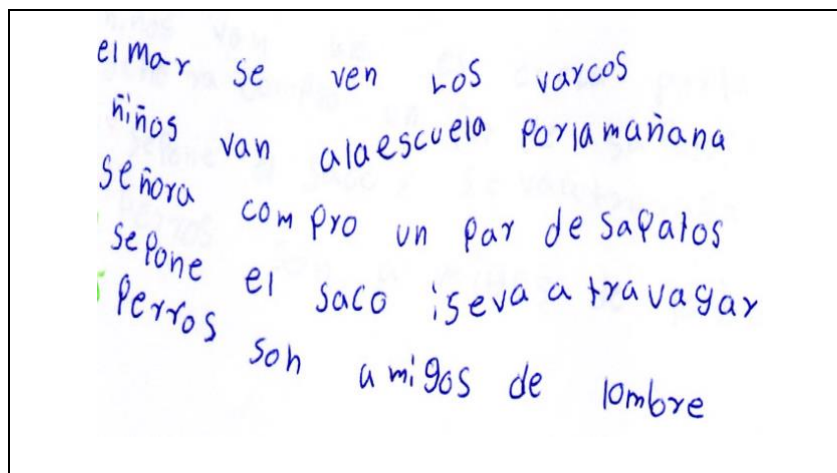 elmar se ven Los varcos
ñiños van alaescuela Porlamañana
Señora compro un Par de sapatos
sepone el saco iseva a travagar
Perros son amigos de lombre